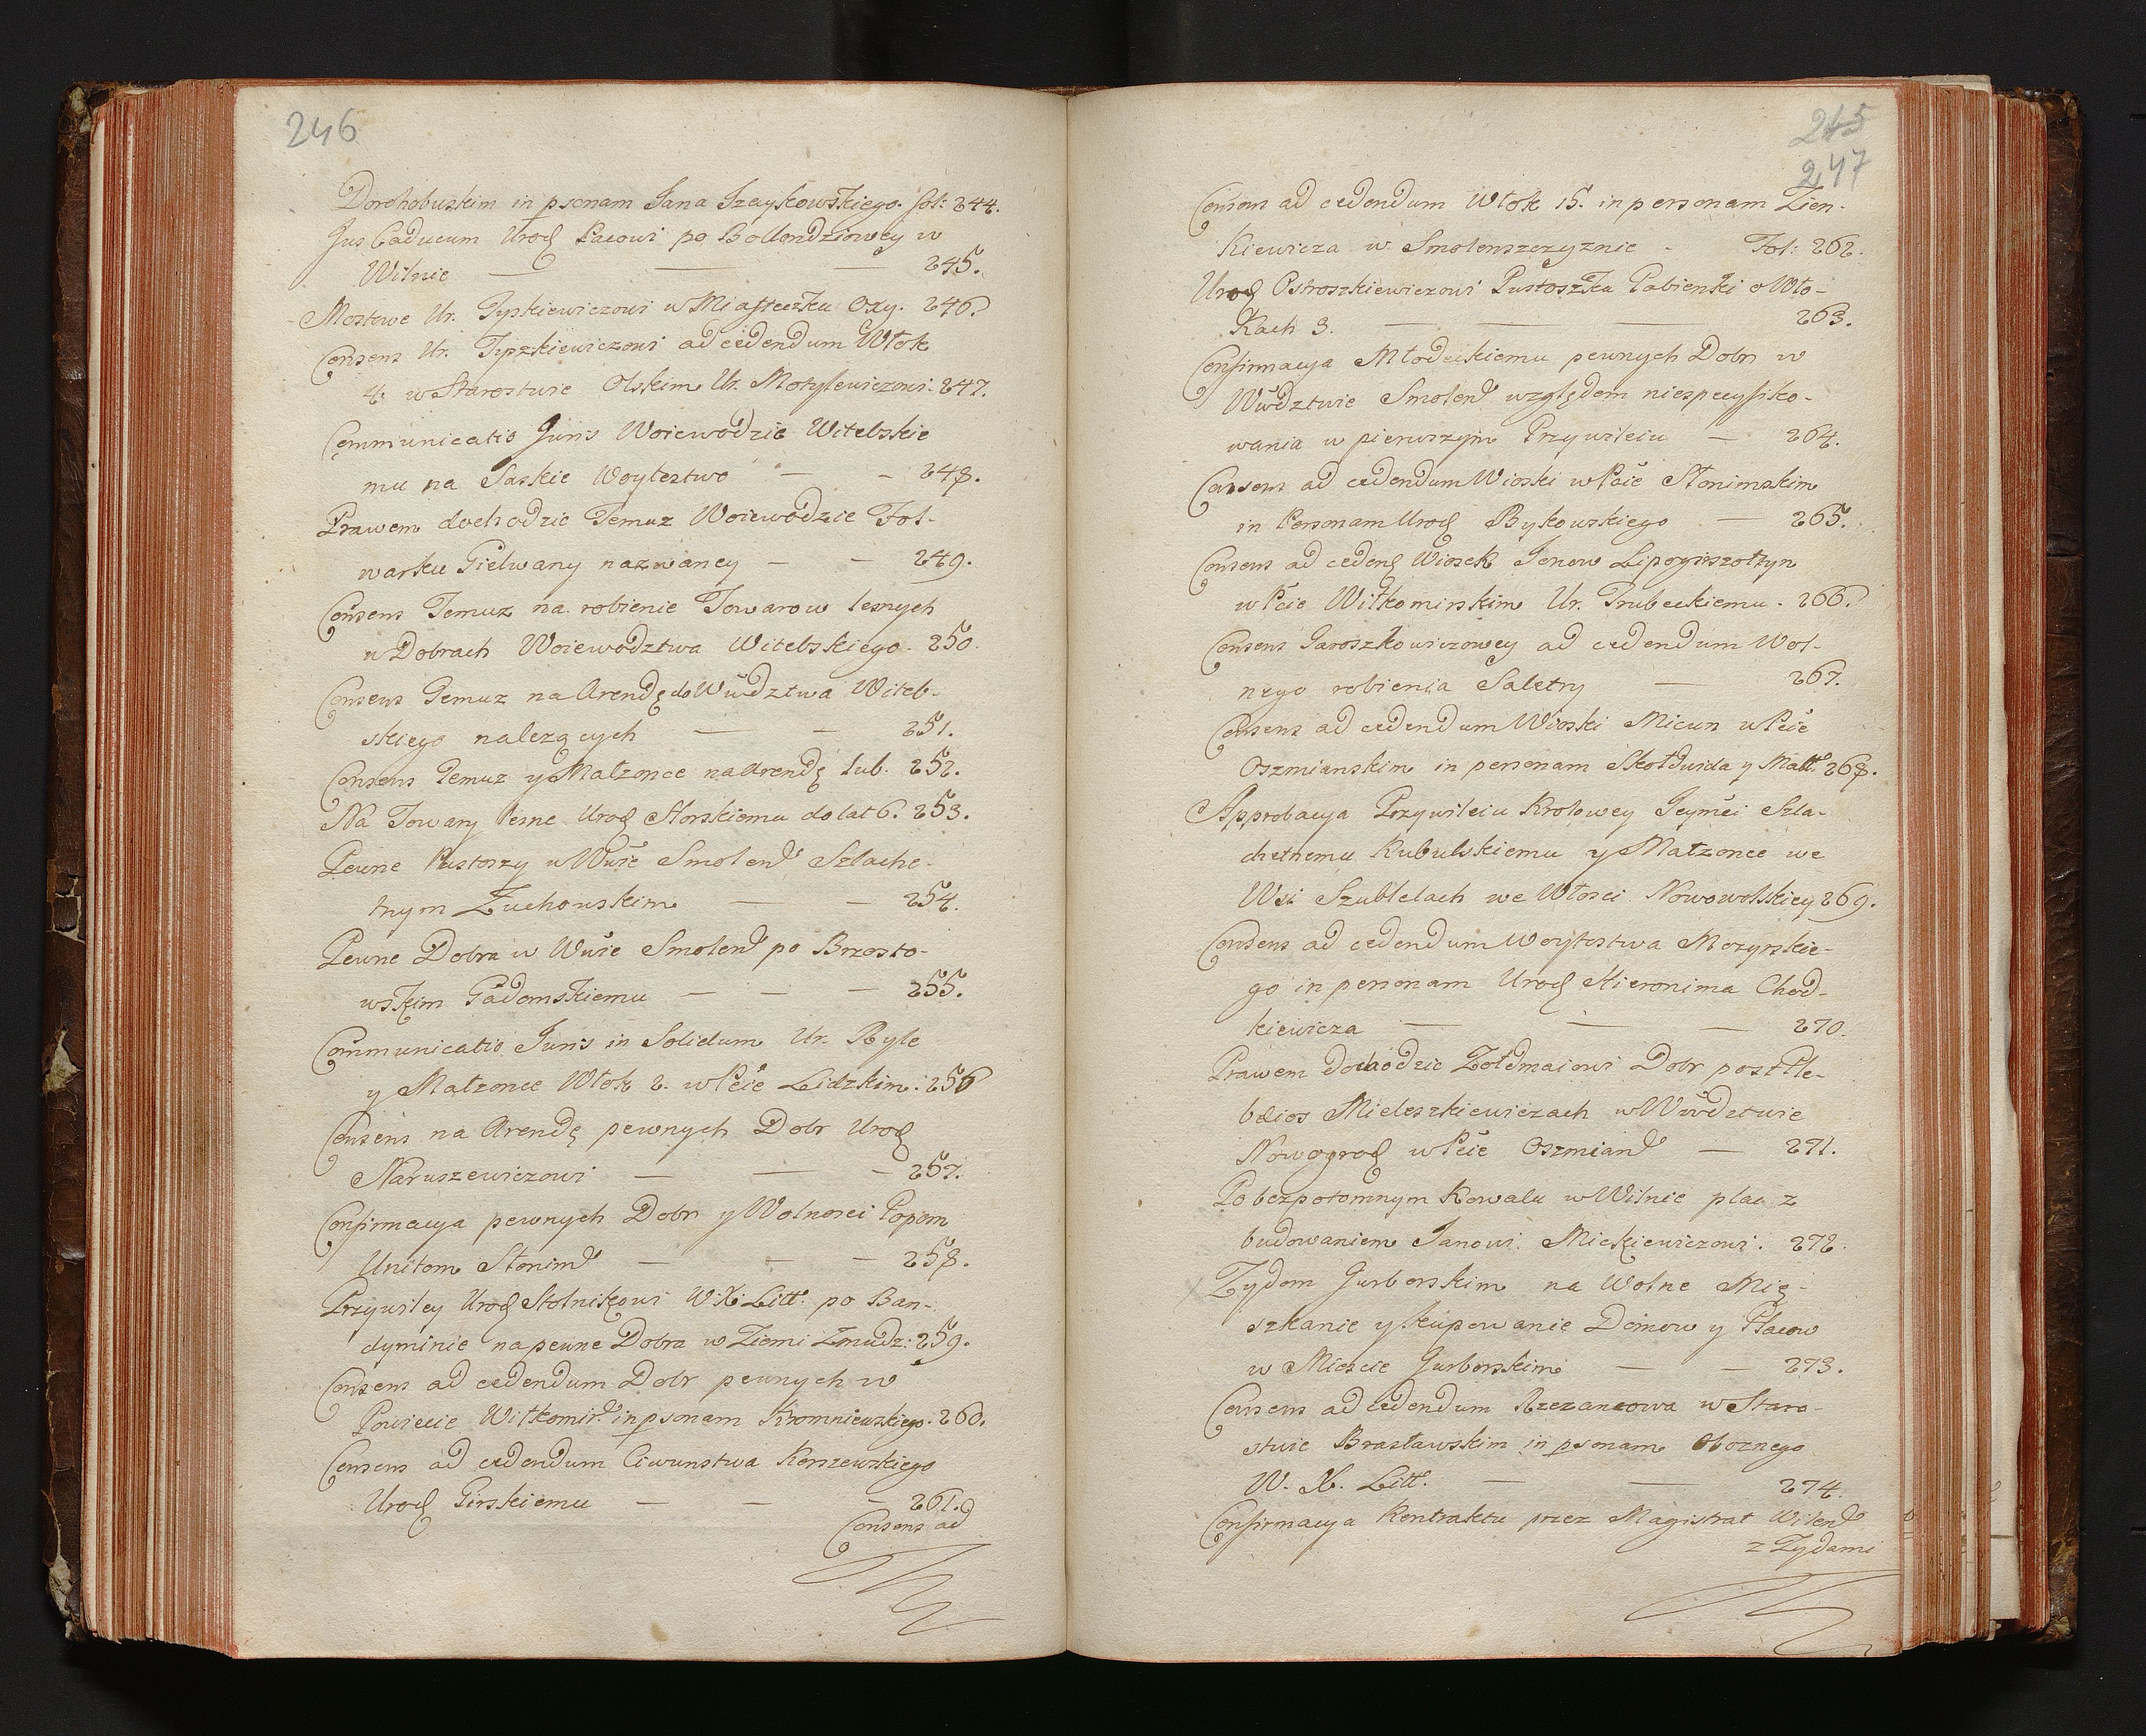 246
Dorohobuskim in psonam Jana Izaykowskiego. fol: 244.
Jus Caducum Urod Pacowi po Bollondziowey w
Wilnie — — — 245.
Mostowe Ur. Tyszkiewiczowi w Miasteczku Oxy. 246.
Consens Ur. Tyszkiewiczowi ad cedendum Włok
4. w Starostwie Olskim Ur. Motylewiczowi. 247.
Communicatio Juris Woiewodzie Witebskie
mu na Saskie Woytostwo — - 248.
Prawem dochodzic Temuz Woiewodzie Fol-
warku Gielwany nazwaney - - 249.
Consens Temuz na robienie Towarow lesnych
w Dobrach Woiewodztwa Witebskiego. 250.
Consens Temuz na Arendę do Wudztwa Witeb-
skiego nalezących — - 251.
Consens Temuz y Malzonce na Arendę lub. 252.
Na Towary lesne Urod Horskiemu do lat 6. 253.
Pewne Pustoszy w Wuie Smolend Szlache-
tnym Zuchowskim — - 254.
Pewne Dobra w Wuie Smolend po Brzosto-
wskim Gadomskiemu - - - 255.
Communicatio Juris in Solidum Ur. Ryle
y Małzonce Włok 2. w Pcie Lidzkim. 256
Consens na Arendę pewnych Dobr Urod
Naruszewiczowi - — - 257.
Confirmacya pewnych Dobr y Wolnosci Popom
Unitom Słonimd - - - 258.
Przywiley Urod Stolnikowi W. X. Litt. po Ban-
dyminie na pewne Dobra w Ziemi Zmudz: 259.
Consens ad cedendum Dobr pewnych w
Powiecie Wiłkomird in psonam Kromniewskiego. 260.
Consens ad cedendum Ciwunstwa Korszewskiego
Urod Girskiemu - - - 261.
Consens ad
245
247
Consens ad cedendum Włok 15. in personam Zien-
kiewicza w Smolenszczyznie - Fol: 262.
Urod Ostroszkiewiczowi Pustoszka Pabienki o Wło-
kach 3. — — — 263.
Confirmacya Młodeckiemu pewnych Dobr w
Wudztwie Smolend względem niespecyfiko-
wania w pierwszym Przywileiu — 264.
Consens ad cedendum Wioski w Pcie Słonimskim
in Personam Urod Bykowskiego — 265.
Consens ad cedend Wiosek Jenow Lipogiszołtyn
w Pcie Wiłkomirskim Ur. Trubeckiemu. 266.
Consens Jaroszkowiczowey ad cedendum Wol-
nego robienia Saletry — 267.
Consens ad cedendum Wioski Micun w Pcie
Oszmianskim in personam Skołdurda y Małł. 268.
Approbacya Przywileiu Krolowey Jeymci Szla-
chetnemu Kubulskiemu y Małzonce we
Wsi Szublelach we Włosci Nowowolskiey 269.
Consens ad cedendum Woytostwa Mozyrskie-
go in personam Urod Hieronima Chod-
kiewicza — — — 270.
Prawem dochodzic Zołdmaiowi Dobr post Ple-
beios Mieleszkiewiczach w Wwdztwie
Nowogrod w Pcie Oszmiand — 271.
Po bezpotomnym Kowalu w Wilnie plac z
budowaniem Janowi Mickiewiczowi. 272.
Zydom Jurborskim na Wolne Mię-
szkanie y kupowanie Domow y Placow
w Miescie Jurborskim — - 273.
Consens ad cedendum Rzezancowa w Staro-
stwie Brasławskim in psonam Oboznego
W. X. Litt. — — 274.
Confirmacya Kontraktu przez Magistrat Wilend
z Zydami